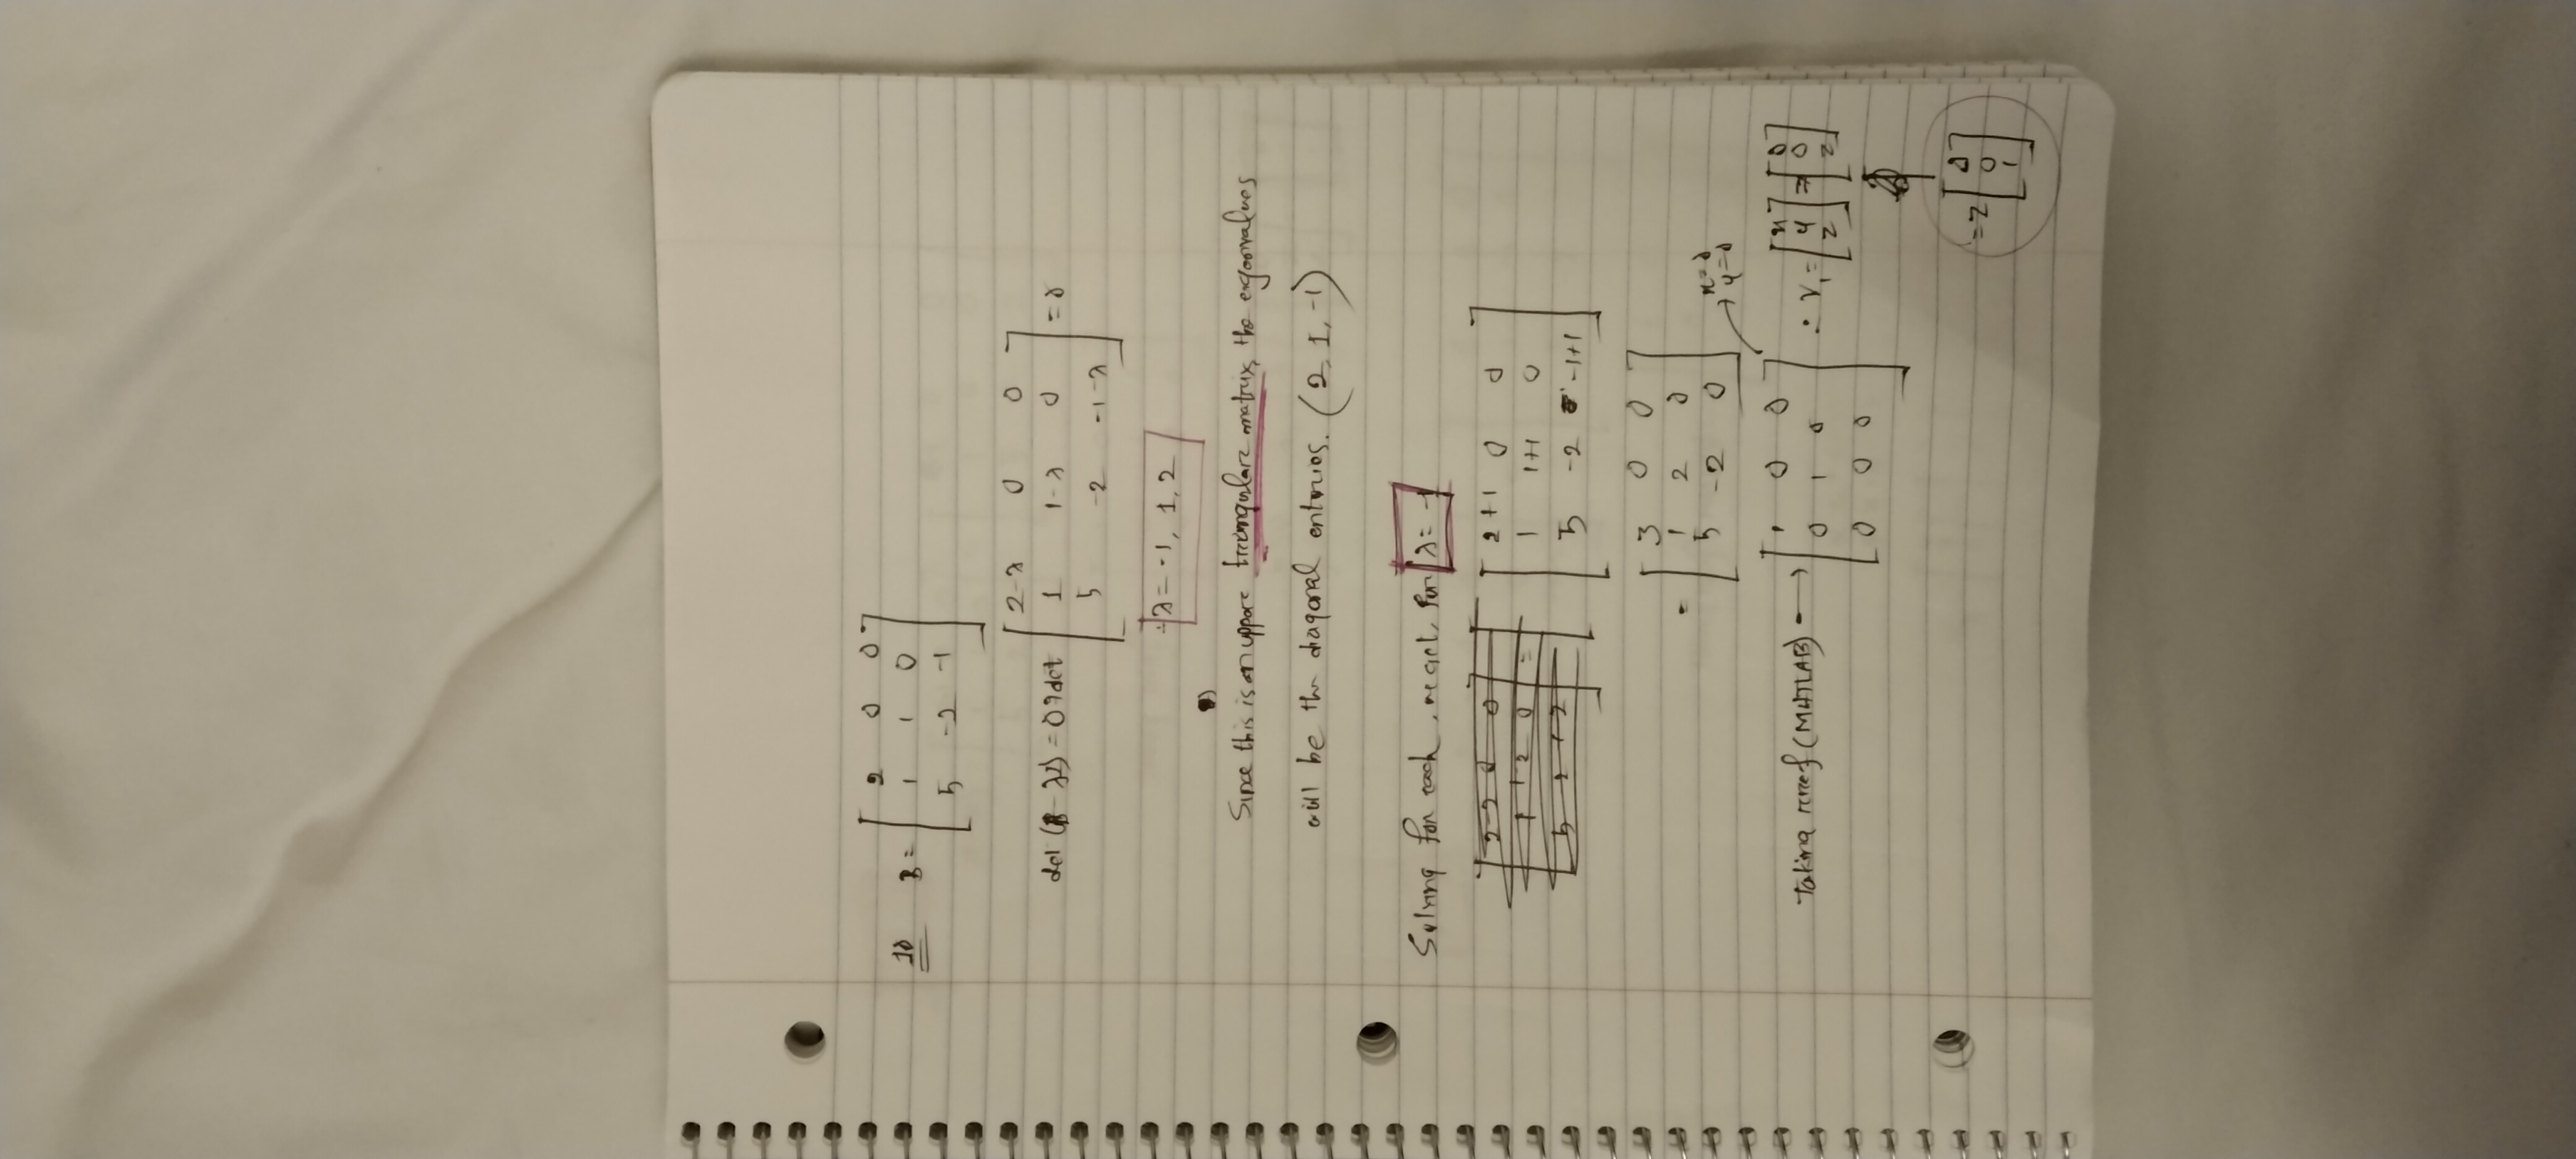 10 B = [ 2 0 0
1 1 0
5 -2 -1 ]
det (B - λI) = 0 det [ 2-λ 0 0
1 1-λ 0
5 -2 -1-λ ] = 0
∴ λ = -1, 1, 2
Since this is an upper triangular matrix, the eigenvalues
will be the diagonal entries. (2, 1, -1)
Solving for each, we get, for λ = -1
[ 2+1 0 0
1 1+1 0
5 -2 -1+1 ]
= [ 3 0 0
1 2 0
5 -2 0 ]
x=0
y=0
Taking rref (MATLAB) → [ 1 0 0
0 1 0
0 0 0 ] ∴ V₁ = [ x y z ] = [ 0 0 z ]
= z [ 0
0
1 ]